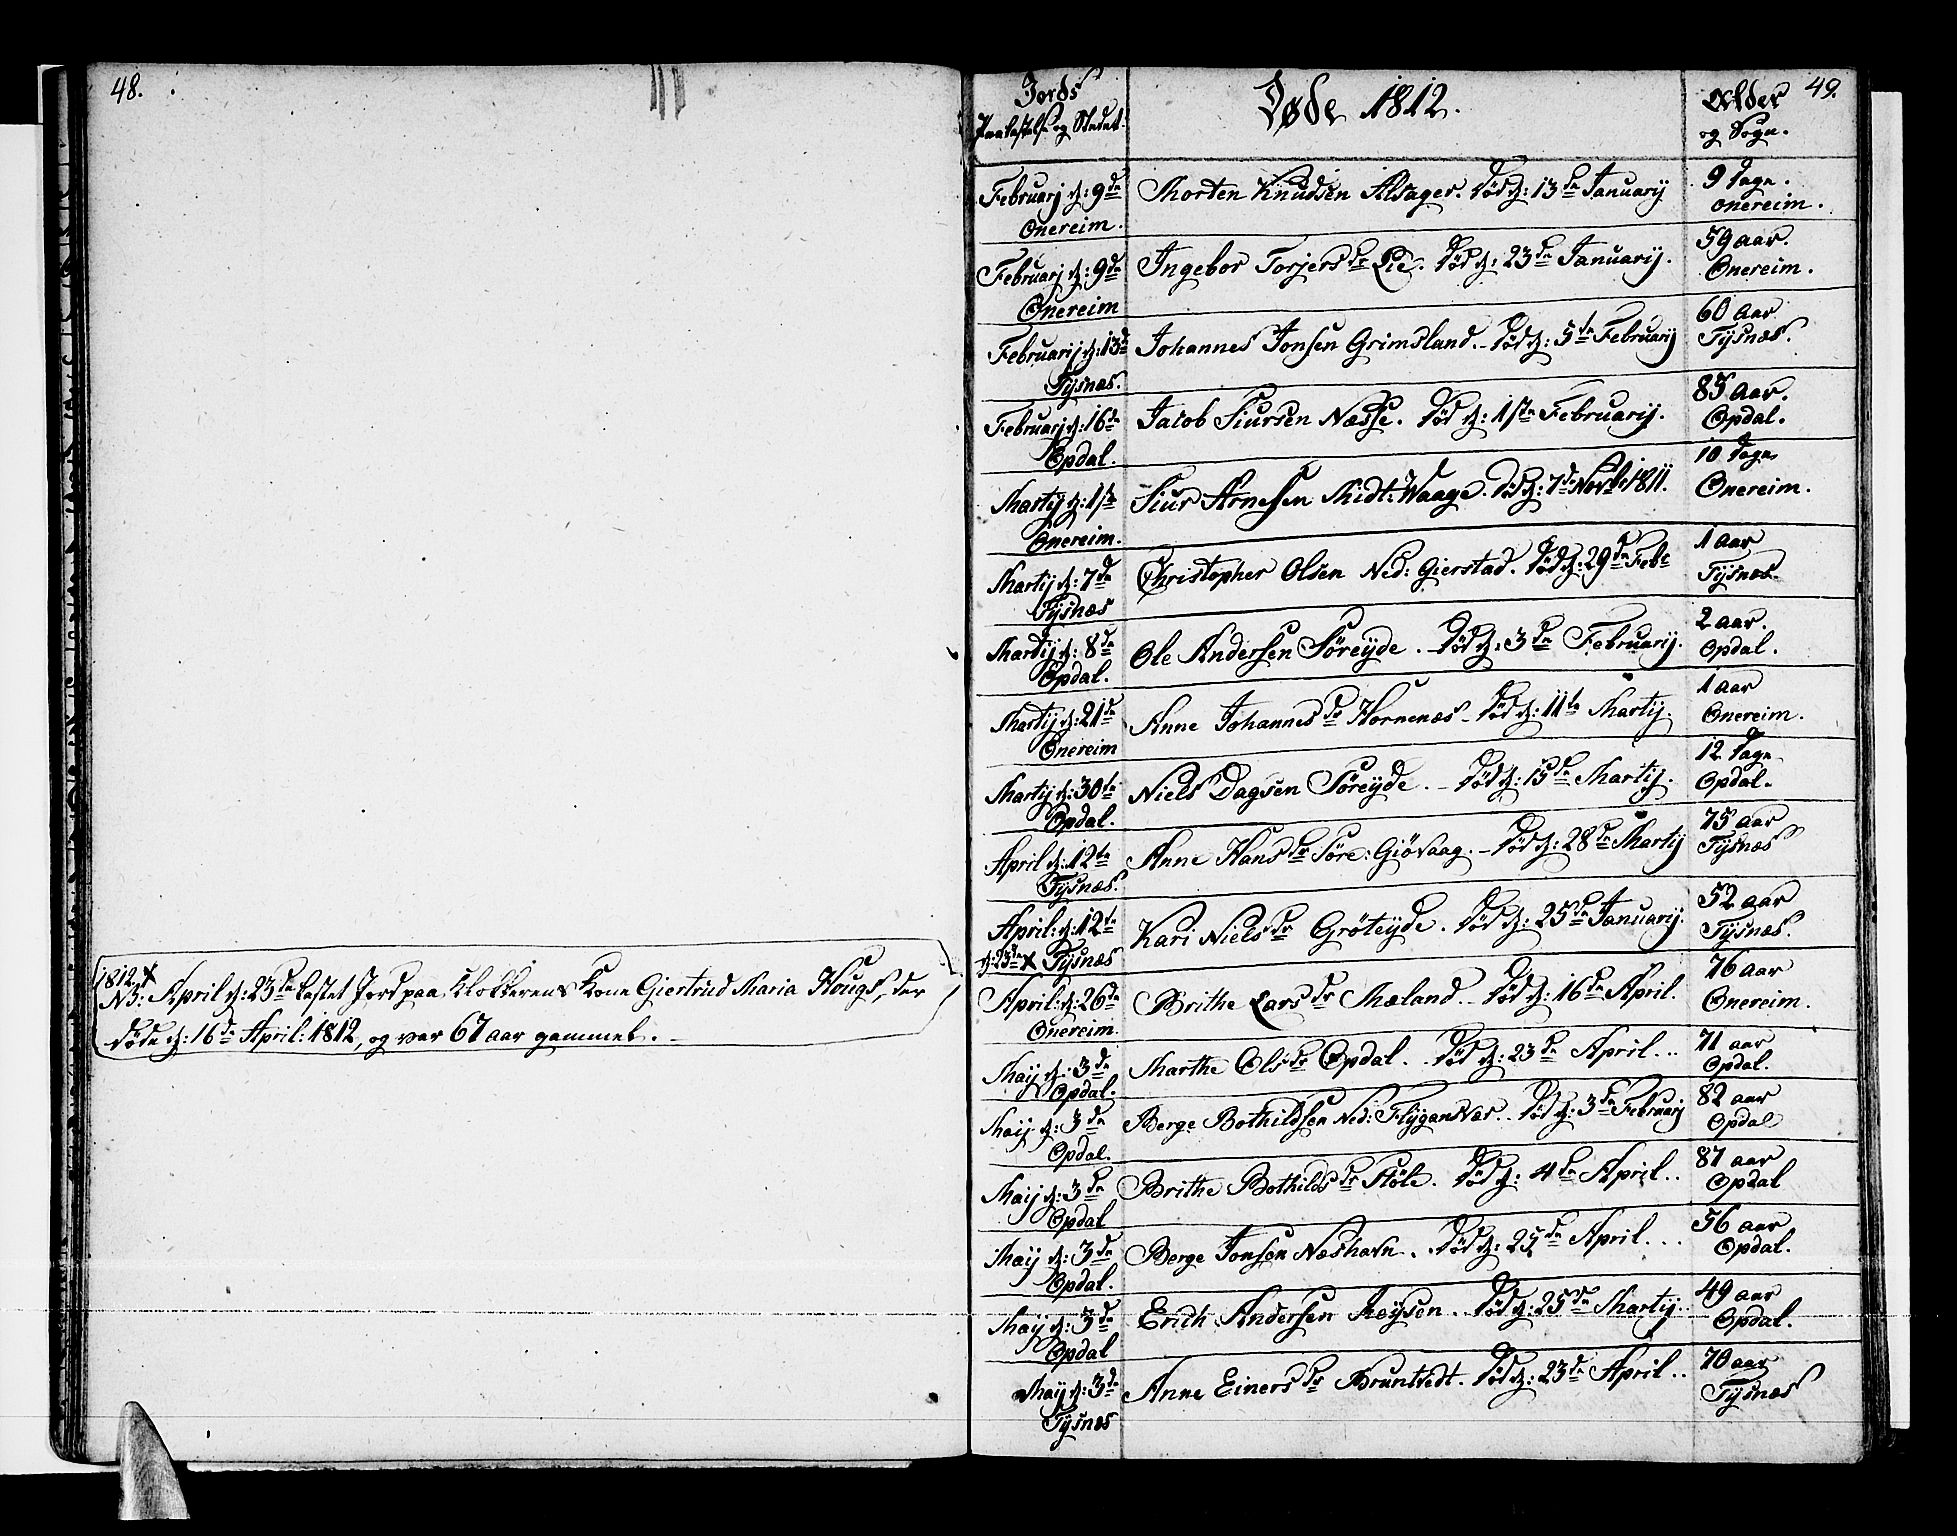 48.
1812 X
NB: April d: 23de kastet Jord paa Klokkerens Kone Giertrud Maria Hougs, der
døde d: 16de April: 1812, og var 67 aar gammel.
49.
Jords
Paakastelse og Stedet.
Døde 1812.
Alder
og Sogn.
Februarj d: 9de
Onereim.
Morten Knudsen Alsager. Død d: 13de Januarij
9 Dage.
Onereim.
Februarj d: 9de
Onereim
Ingebor Torjersdr Lie. Død d: 23de Januarij.
59 aar.
Onereim.
Februarij d: 13de
Tysnæs.
Johannes Jonsen Grimsland. Død d: 5te Februarij
60 aar
Tysnæs.
Februarj d: 16de
Opdal.
Jacob Siursen Næsse. Død d: 1ste Februarij.
85 aar.
Opdal.
Martij d: 1ste
Onereim.
Siur Arnesen Midt: Waage. Død d: 7de Novbr 1811.
10 Dage
Onereim.
Martij d: 7de
Tysnæs
Christopher Olsen Ned: Gierstad. Død d: 29de Feb:
1 aar
Tysnæs.
Martij d: 8de
Opdal.
Ole Andersen Söreyde. Död d: 3de Februarij.
2 aar.
Opdal.
Martij d: 21de
Onereim
Anne Johannesdr Hornenæs - Död d: 11te Martij.
1 aar
Onereim.
Martij d: 30te
Opdal.
Niels Dagsen Söreyde. - Död d: 15de Martij.
12 Dage
Opdal.
April d: 12te
Tysnæs.
Anne Hansdr Söre: Giövaag. - Död d: 28de Martij
75 aar
Tysnæs
April: d: 12te
d: 23de X Tysnæs
Kari Nielsdr Gröteyde. Död d: 25de Januarij.
52 aar
Tysnæs.
April: d: 26de
Onereim.
Brithe Larsdr Mæland. - Död d: 16de April.
76 aar
Onereim.
Maij d: 3de
Opdal.
Marthe Olsdr Opdal. Död d: 23de April..
71 aar
Opdal.
Maij d: 3de
Opdal.
Berge Bothildsen Ned: Flygansvær. Död d: 3de Februarij
82 aar
Opdal
Maij d: 3de
Opdal
Brithe Bothildsdr Stöle. Död d: 4de April..
87 aar
Opdal
Maij d: 3de
Opdal.
Berge Jonsen Næshavn. Död d: 25de April...
56 aar
Opdal.
Maij d: 3de
Opdal
Erich Andersen Reysen. Död d: 25de Martij..
49 aar
Opdal.
Maij d: 3de
Tysnæs
Anne Einersdr Bruntvedt. Död d: 23de April..
70 aar
Tysnæs